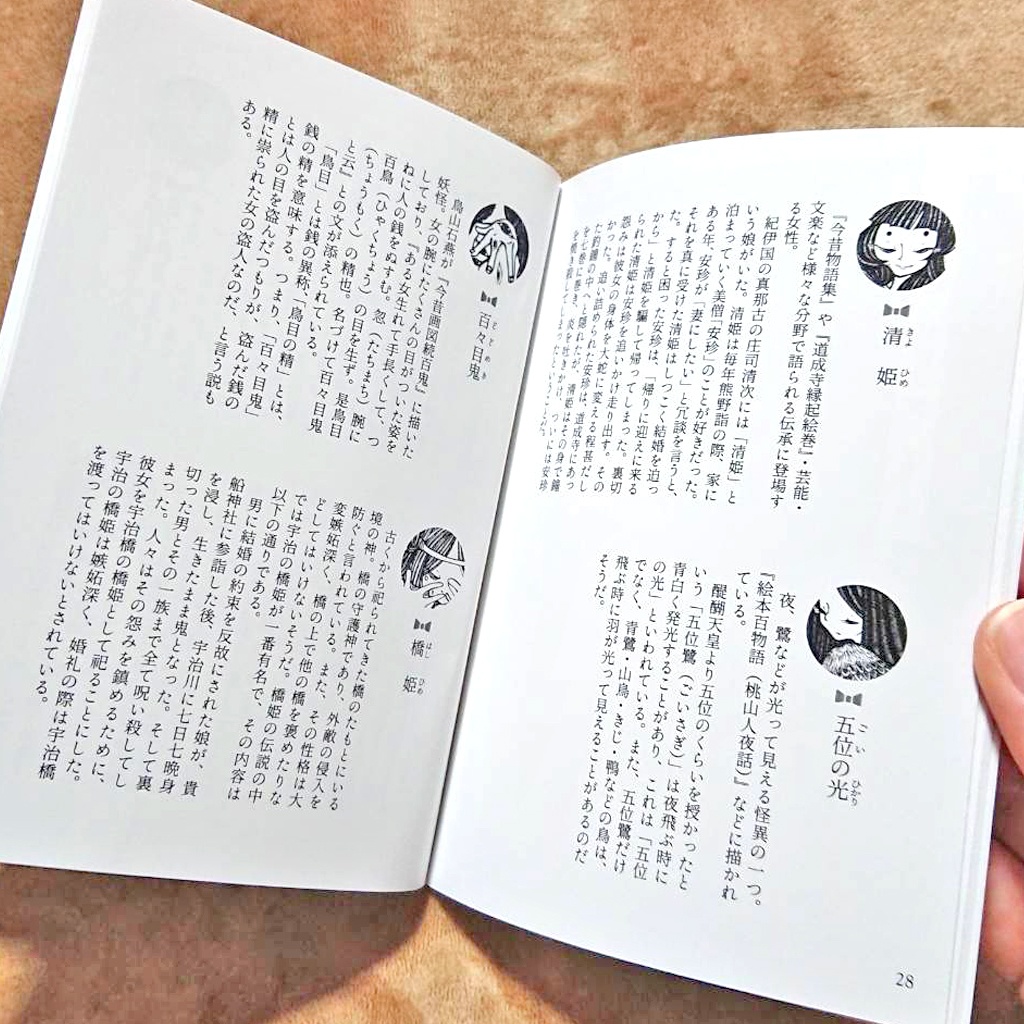 清姫
きよ ひめ
『今昔物語集』や『道成寺縁起絵巻』・芸能・
文楽など様々な分野で語られる伝承に登場す
る女性。
紀伊国の真那古の庄司清次には「清姫」と
いう娘がいた。清姫は毎年熊野詣の際、家に
泊まっていく美僧「安珍」のことが好きだった。
ある年、安珍が「妻にしたい」と冗談を言うと、
それを真に受けた清姫はしつこく結婚を迫っ
た。すると困った安珍は、「帰りに迎えに来る
から」と清姫を騙して帰ってしまった。裏切
られた清姫は安珍を追いかけ走り出す。その
怨みは彼女の身体を大蛇に変える程甚だし
かった。追い詰められた安珍は、道成寺にあっ
た釣鐘の中へと隠れたが、清姫はその身で鐘
を七巻に巻き、炎を吐きかけ、ついには安珍
を焼き殺してしまったということだ。
五位の光
ごい ひかり
夜、鷺などが光って見える怪異の一つ。
『絵本百物語（桃山人夜話）』などに描かれ
ている。
醍醐天皇より五位のくらいを授かったと
いう「五位鷺（ごいさぎ）」は夜飛ぶ時に
青白く発光することがあり、これは「五位
の光」といわれている。また、五位鷺だけ
でなく、青鷺・山鳥・きじ・鴨などの鳥は、
飛ぶ時に羽が光って見えることがあるのだ
そうだ。
28
百々目鬼
どどめき
鳥山石燕が『今昔画図続百鬼』に描いた
妖怪。女の腕にたくさんの目がついた姿を
しており、『ある女生れて手長くして、つ
ねに人の銭をぬすむ。忽（たちまち）腕に
百鳥（ひゃくちょう）の目を生ず。是鳥目
（ちょうもく）の精也。名づけて百々目鬼
と云』との文が添えられている。
「鳥目」とは銭の異称、「鳥目の精」とは、
銭の精を意味する。つまり、「百々目鬼」
とは人の目を盗んだつもりが、盗んだ銭の
精に祟られた女の盗人なのだ、と言う説も
ある。
橋姫
はし ひめ
古くから祀られてきた橋のたもとにいる
境の神。橋の守護神であり、外敵の侵入を
防ぐと言われている。また、その性格は大
変嫉妬深く、橋の上で他の橋を褒めたりな
どしてはいけないそうだ。橋姫の伝説の中
では宇治の橋姫が一番有名で、その内容は
以下の通りである。
男に結婚の約束を反故にされた娘が、貴
船神社に参詣した後、宇治川に七日七晩身
を浸し、生きたまま鬼となった。そして裏
切った男とその一族まで全て呪い殺してし
まった。人々はその怨みを鎮めるために、
彼女を宇治橋の橋姫として祀ることにした。
宇治の橋姫は嫉妬深く、婚礼の際は宇治橋
を渡ってはいけないとされている。